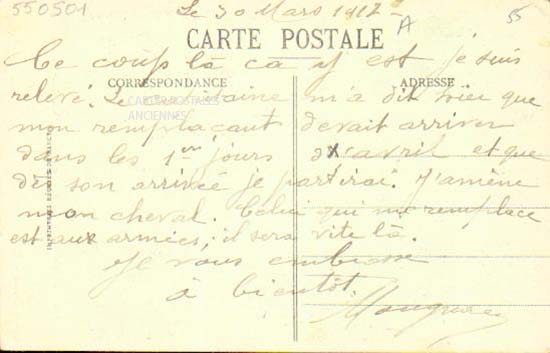 550501
Le 30 Mars 1917
A
55
CARTE POSTALE
Ce coup là ça y est je suis
CORRESPONDANCE
ADRESSE
relevé. Le Capitaine m'a dit hier que
CARTES POSTALES
ANCIENNES
mon remplaçant devait arriver
dans les 1ers jours d'avril et que
dès son arrivée je partirai. J'amène
mon cheval. Celui qui me remplace
est aux armées, il sera vite là.
Je vous embrasse
à bientôt.
IMPRIMERIES RÉUNIES DE NANCY